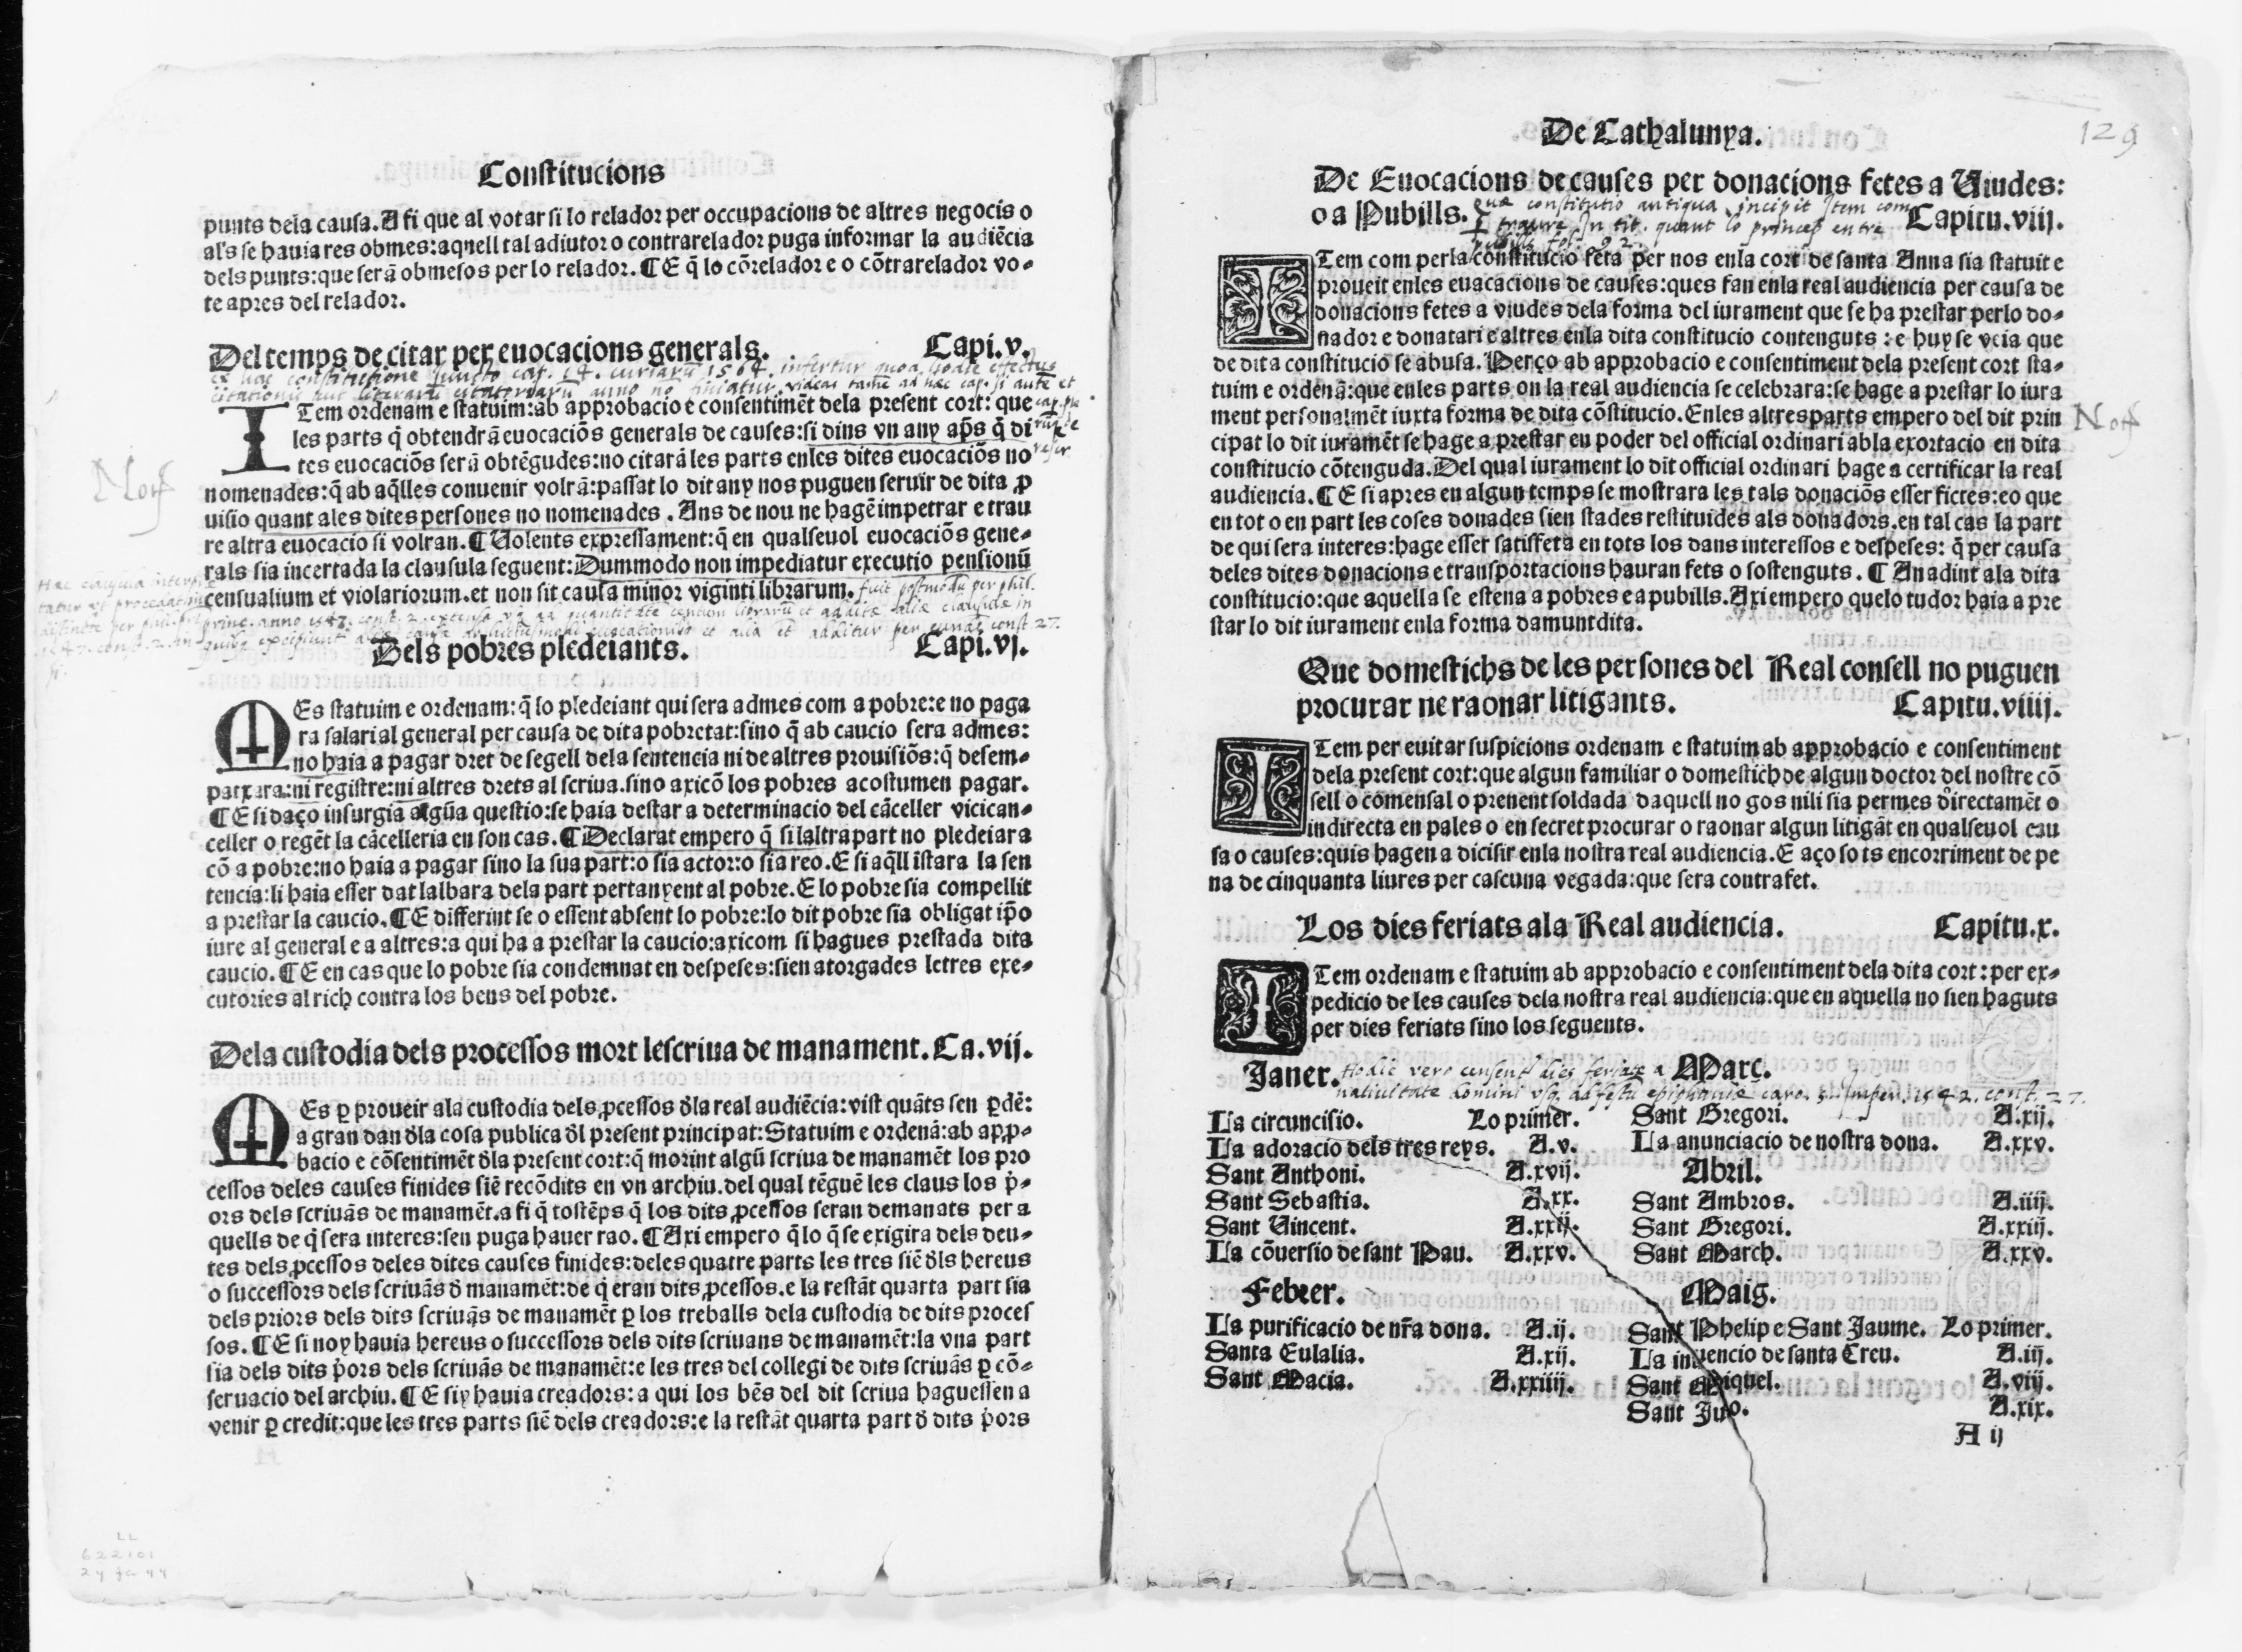 Constitucions
punts dela causa. A fi que al votar si lo relador per occupacions de altres negocis o
als se hauia res obmes: aquell tal adiutor o contrarelador puga informar la audiẽcia
dels punts: que serã obmesos per lo relador. ¶ E q̃ lo cõrelador e o cõtrarelador vo-
te apres del relador.
Del temps de citar per euocacions generals. Capi.v.
ITem ordenam e statuim: ab approbacio e consentimẽt dela present cort: que
les parts q̃ obtendrã euocaciõs generals de causes: si dins vn any ap̃s q̃ di
tes euocaciõs serã obtẽgudes: no citarã les parts enles dites euocaciõs no
nomenades: q̃ ab aq̃lles conuenir volrã: passat lo dit any nos puguen seruir de dita ꝓ
uisio quant ales dites persones no nomenades. Ans de nou ne hagẽ impetrar e trau
re altra euocacio si volran. ¶ Uolents expressament: q̃ en qualseuol euocaciõs gene-
rals sia incertada la clausula seguent: Dummodo non impediatur executio pensionũ
censualium et violariorum. et non sit causa minor viginti librarum.
Dels pobres pledeiants. Capi.vj.
MEs statuim e ordenam: q̃ lo pledeiant qui sera admes com a pobre: e no paga
ra salari al general per causa de dita pobretat: sino q̃ ab caucio sera admes:
no haia a pagar dret de segell dela sentencia ni de altres prouisiõs: q̃ desem-
patxara: ni registre: ni altres drets al scriua. sino axicõ los pobres acostumen pagar.
¶ E si daço insurgia algũa questio: se haia destar a determinacio del cãceller vicican-
celler o regẽt la cãcelleria en son cas. ¶ Declarat empero q̃ si laltra part no pledeiara
cõ a pobre: no haia a pagar sino la sua part: o sia actor: o sia reo. E si aq̃ll istara la sen
tencia: li haia esser dat lalbara dela part pertanyent al pobre. E lo pobre sia compellit
a prestar la caucio. ¶ E differint se o essent absent lo pobre: lo dit pobre sia obligat ip̃o
iure al general e a altres: a qui ha a prestar la caucio: axicom si hagues prestada dita
caucio. ¶ E en cas que lo pobre sia condemnat en despeses: sien atorgades letres exe-
cutories al rich contra los bens del pobre.
Dela custodia dels processos mort lescriua de manament. Ca.vij.
MEs ꝑ proueir ala custodia dels ꝓcessos d̃la real audiẽcia: vist quãts sen ꝑdẽ:
a gran dan d̃la cosa publica d̃l present principat: Statuim e ordenã: ab apꝓ-
bacio e cõsentimẽt d̃la present cort: q̃ morint algũ scriua de manamẽt los pro
cessos deles causes finides siẽ recõdits en vn archiu. del qual tẽguẽ les claus los p̃-
ors dels scriuãs de manamẽt. a fi q̃ tostẽps q̃ los dits ꝓcessos seran demanats per a
quells de q̃ sera interes: sen puga hauer rao. ¶ Axi empero q̃ lo q̃ se exigira dels deu-
tes dels ꝓcessos deles dites causes finides: deles quatre parts les tres siẽ d̃ls hereus
o successors dels scriuãs d̃ manamẽt: de q̃ eran dits ꝓcessos. e la restãt quarta part sia
dels priors dels dits scriuãs de manamẽt ꝑ los treballs dela custodia de dits proces
sos. ¶ E si noy hauia hereus o successors dels dits scriuans de manamẽt: la vna part
sia dels dits p̃ors dels scriuãs de manamẽt: e les tres del collegi de dits scriuãs ꝑ cõ-
seruacio del archiu. ¶ E siy hauia creadors: a qui los bẽs del dit scriua haguessen a
venir ꝑ credit: que les tres parts siẽ dels creadors: e la restãt quarta part d̃ dits p̃ors
De Cathalunya.
129
De Euocacions de causes per donacions fetes a Uiudes:
o a Pubills. Capitu.viij.
quæ constitutio antiqua incipit Item com
ITem com perla constitucio feta per nos enla cort de santa Anna sia statuit e
proueit enles euacacions de causes: ques fan enla real audiencia per causa de
donacions fetes a viudes dela forma del iurament que se ha prestar perlo do-
nador e donatari e altres enla dita constitucio contenguts: e huy se veia que
de dita constitucio se abusa. Perço ab approbacio e consentiment dela present cort sta-
tuim e ordenã: que enles parts on la real audiencia se celebrara: se hage a prestar lo iura
ment personalmẽt iuxta forma de dita cõstitucio. Enles altres parts empero del dit prin
cipat lo dit iuramẽt se hage a prestar en poder del official ordinari abla exortacio en dita
constitucio cõtenguda. Del qual iurament lo dit official ordinari hage a certificar la real
audiencia. ¶ E si apres en algun temps se mostrara les tals donaciõs esser fictes: eo que
en tot o en part les coses donades sien stades restituides als donadors. en tal cas la part
de qui sera interes: hage esser satisfeta en tots los dans interessos e despeses: q̃ per causa
deles dites donacions e transportacions hauran fets o sostenguts. ¶ Anadint ala dita
constitucio: que aquella se estena a pobres e a pubills. Axi empero quelo tudor haia a pre
star lo dit iurament enla forma damuntdita.
Que domestichs de les persones del Real consell no puguen
procurar ne raonar litigants. Capitu.viiij.
ITem per euitar suspicions ordenam e statuim ab approbacio e consentiment
dela present cort: que algun familiar o domestich de algun doctor del nostre cõ
sell o comensal o prenent soldada daquell no gos nili sia permes directamẽt o
indirecta en pales o en secret procurar o raonar algun litigãt en qualseuol cau
sa o causes: quis hagen a dicisir enla nostra real audiencia. E aço sots encorriment de pe
na de cinquanta liures per cascuna vegada: que sera contrafet.
Los dies feriats ala Real audiencia. Capitu.x.
ITem ordenam e statuim ab approbacio e consentiment dela dita cort: per ex-
pedicio de les causes dela nostra real audiencia: que en aquella no sien haguts
per dies feriats sino los seguents.
Janer.
La circuncisio. Lo primer.
La adoracio dels tres reys. A.v.
Sant Anthoni. A.xvij.
Sant Sebastia. A.xx.
Sant Uincent. A.xxij.
La cõuersio de sant Pau. A.xxv.
Febrer.
La purificacio de nr̃a dona. A.ij.
Santa Eulalia. A.xij.
Sant Macia. A.xxiiij.
Març.
Sant Gregori. A.xij.
La anunciacio de nostra dona. A.xxv.
Abril.
Sant Ambros. A.iiij.
Sant Gregori. A.xxiij.
Sant March. A.xxv.
Maig.
Sant Phelip e Sant Jaume. Lo primer.
La inuencio de santa Creu. A.iij.
Sant Miquel. A.viij.
Sant Juo. A.xix.
A ij